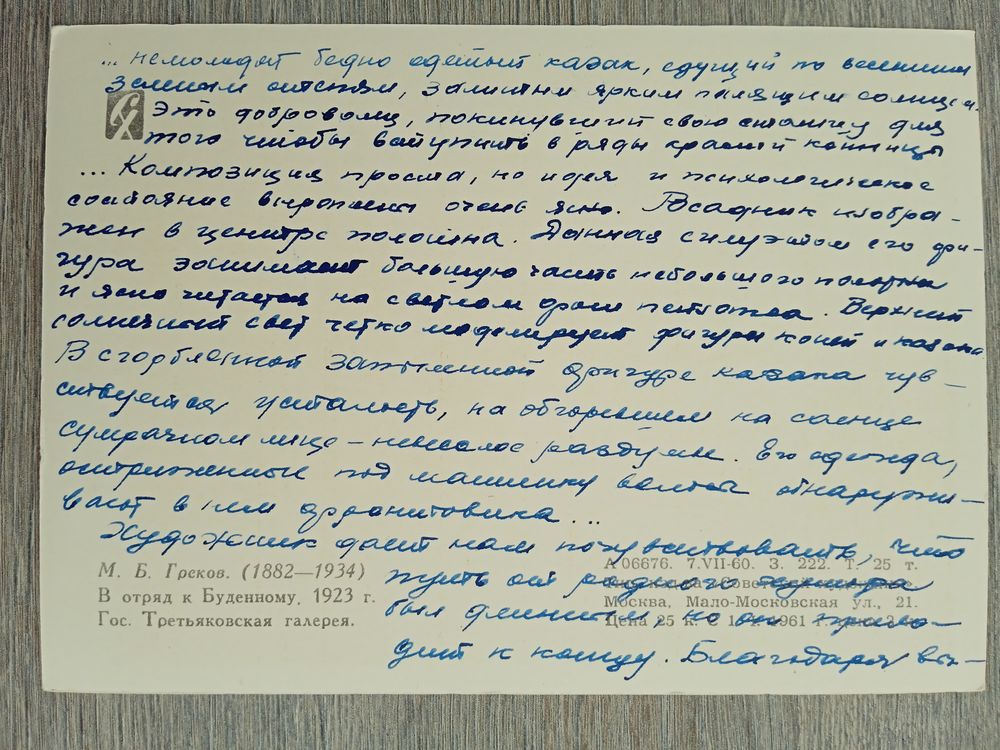 ... немолодой бедно одетый казак, едущий по весенним
зеленым степям, залитым ярким палящим солнцем.
Это доброволец, покинувший свою станицу для
того чтобы вступить в ряды красной конницы
... Композиция проста, но идея и психологическое
состояние выражены очень ясно. Всадник изобра-
жен в центре полотна. Данная силуэтом его фи-
гура занимает большую часть небольшого полотна
и ясно читается на светлом фоне пейзажа. Верхний
солнечный свет четко моделирует фигуры коней и казака
В сгорбленной запыленной фигуре казака чув-
ствуется усталость, на обгоревшем на солнце
сумрачном лице – невеселое раздумье. Его одежда,
остриженные под машинку волосы обнаружи-
вают в нем фронтовика...
Художник дает нам почувствовать, что
путь от родного хутора
был длинным, но он прихо-
дит к концу. Благодаря вы-
М. Б. Греков. (1882—1934)
В отряд к Буденному, 1923 г.
Гос. Третьяковская галерея.
А 06676. 7.VII-60. З. 222. Т. 25 т.
Москва, Мало-Московская ул., 21.
Цена 25 к. С 1961 г.